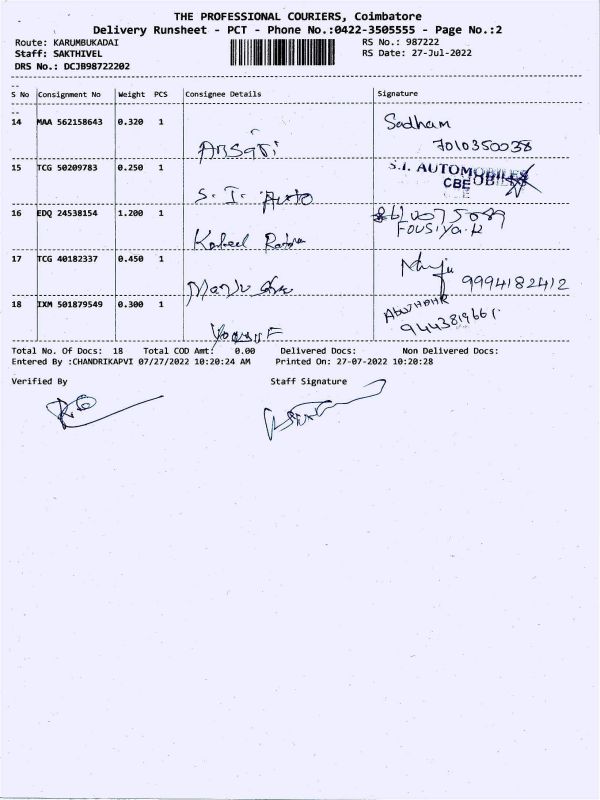 THE PROFESSIONAL COURIERS, Coimbatore
Delivery Runsheet - PCT - Phone No.:0422-3505555 - Page No.:2
Route: KARUMBUKADAI RS No.: 987222
Staff: SAKTHIVEL RS Date: 27-Jul-2022
DRS No.: DCJB98722202
S No Consignment No Weight PCS Consignee Details Signature
Sadham
14 MAA 562158643 0.320 1
Ansari 7010350038
15 TCG 50209783 0.250 1 S.I. AUTOMOBILES
CBE
S. I. Auto
16 EDQ 24538154 1.200 1
Fousiya.
Kabeel
17 TCG 40182337 0.450 1
9994182412
Manju
18 IXM 501879549 0.300 1
9443819661
Total No. Of Docs: 18 Total COD Amt: 0.00 Delivered Docs: Non Delivered Docs:
Entered By :CHANDRIKAPVI 07/27/2022 10:20:24 AM Printed On: 27-07-2022 10:20:28
Verified By Staff Signature